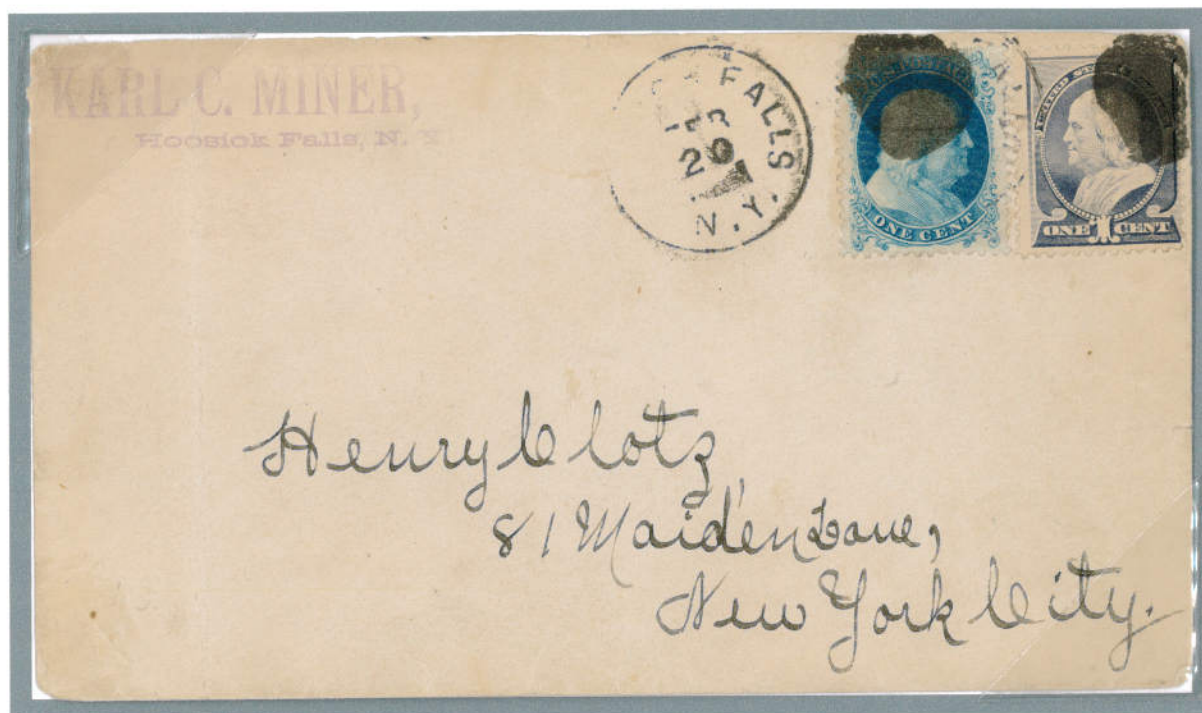 KARL C. MINER,
Hoosick Falls, N. Y
FALLS
20
N. Y.
ONE CENT
ONE CENT
Henry Clotz,
81 Maiden Lane,
New York City.